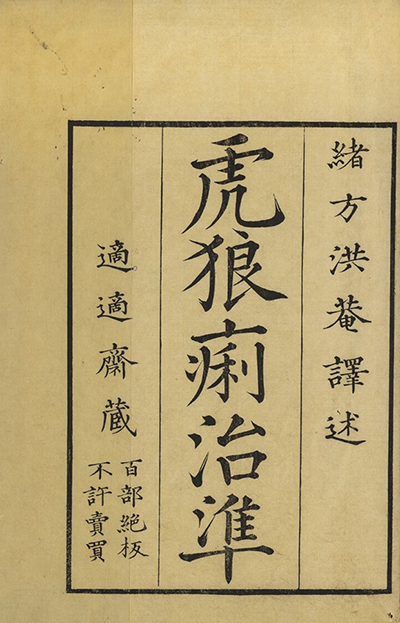 緒方洪菴譯述
虎狼痢治準
適適齋蔵
百部絶板
不許賣買